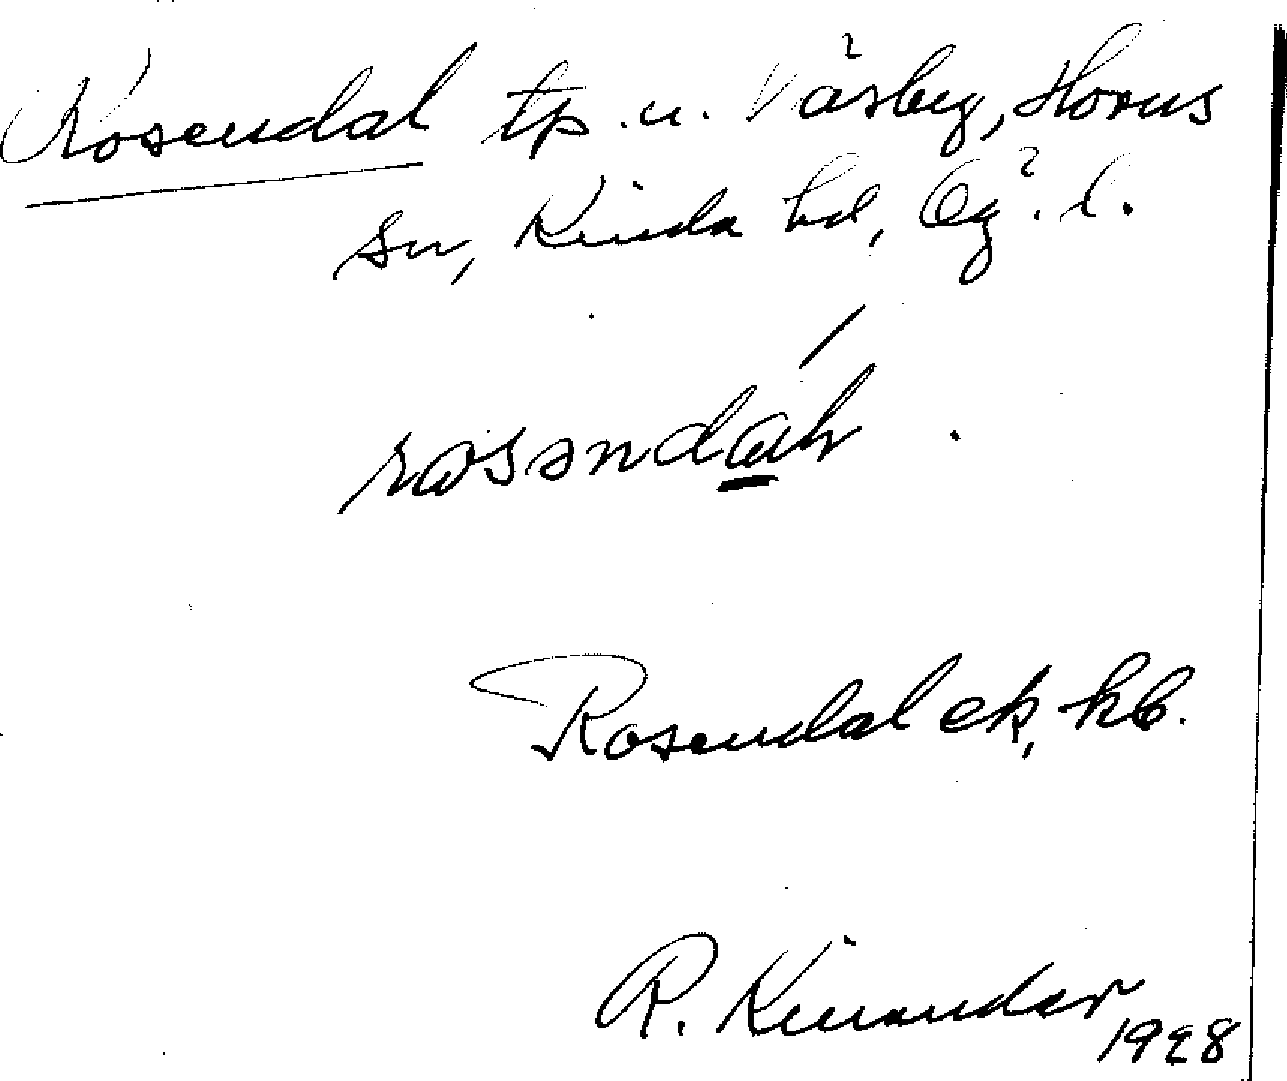 Rosendal tp. u. Våsby, Horns
sn, Kinda hd, Ög. l.
Rosendal ek, kb.
R. Kinander
1928